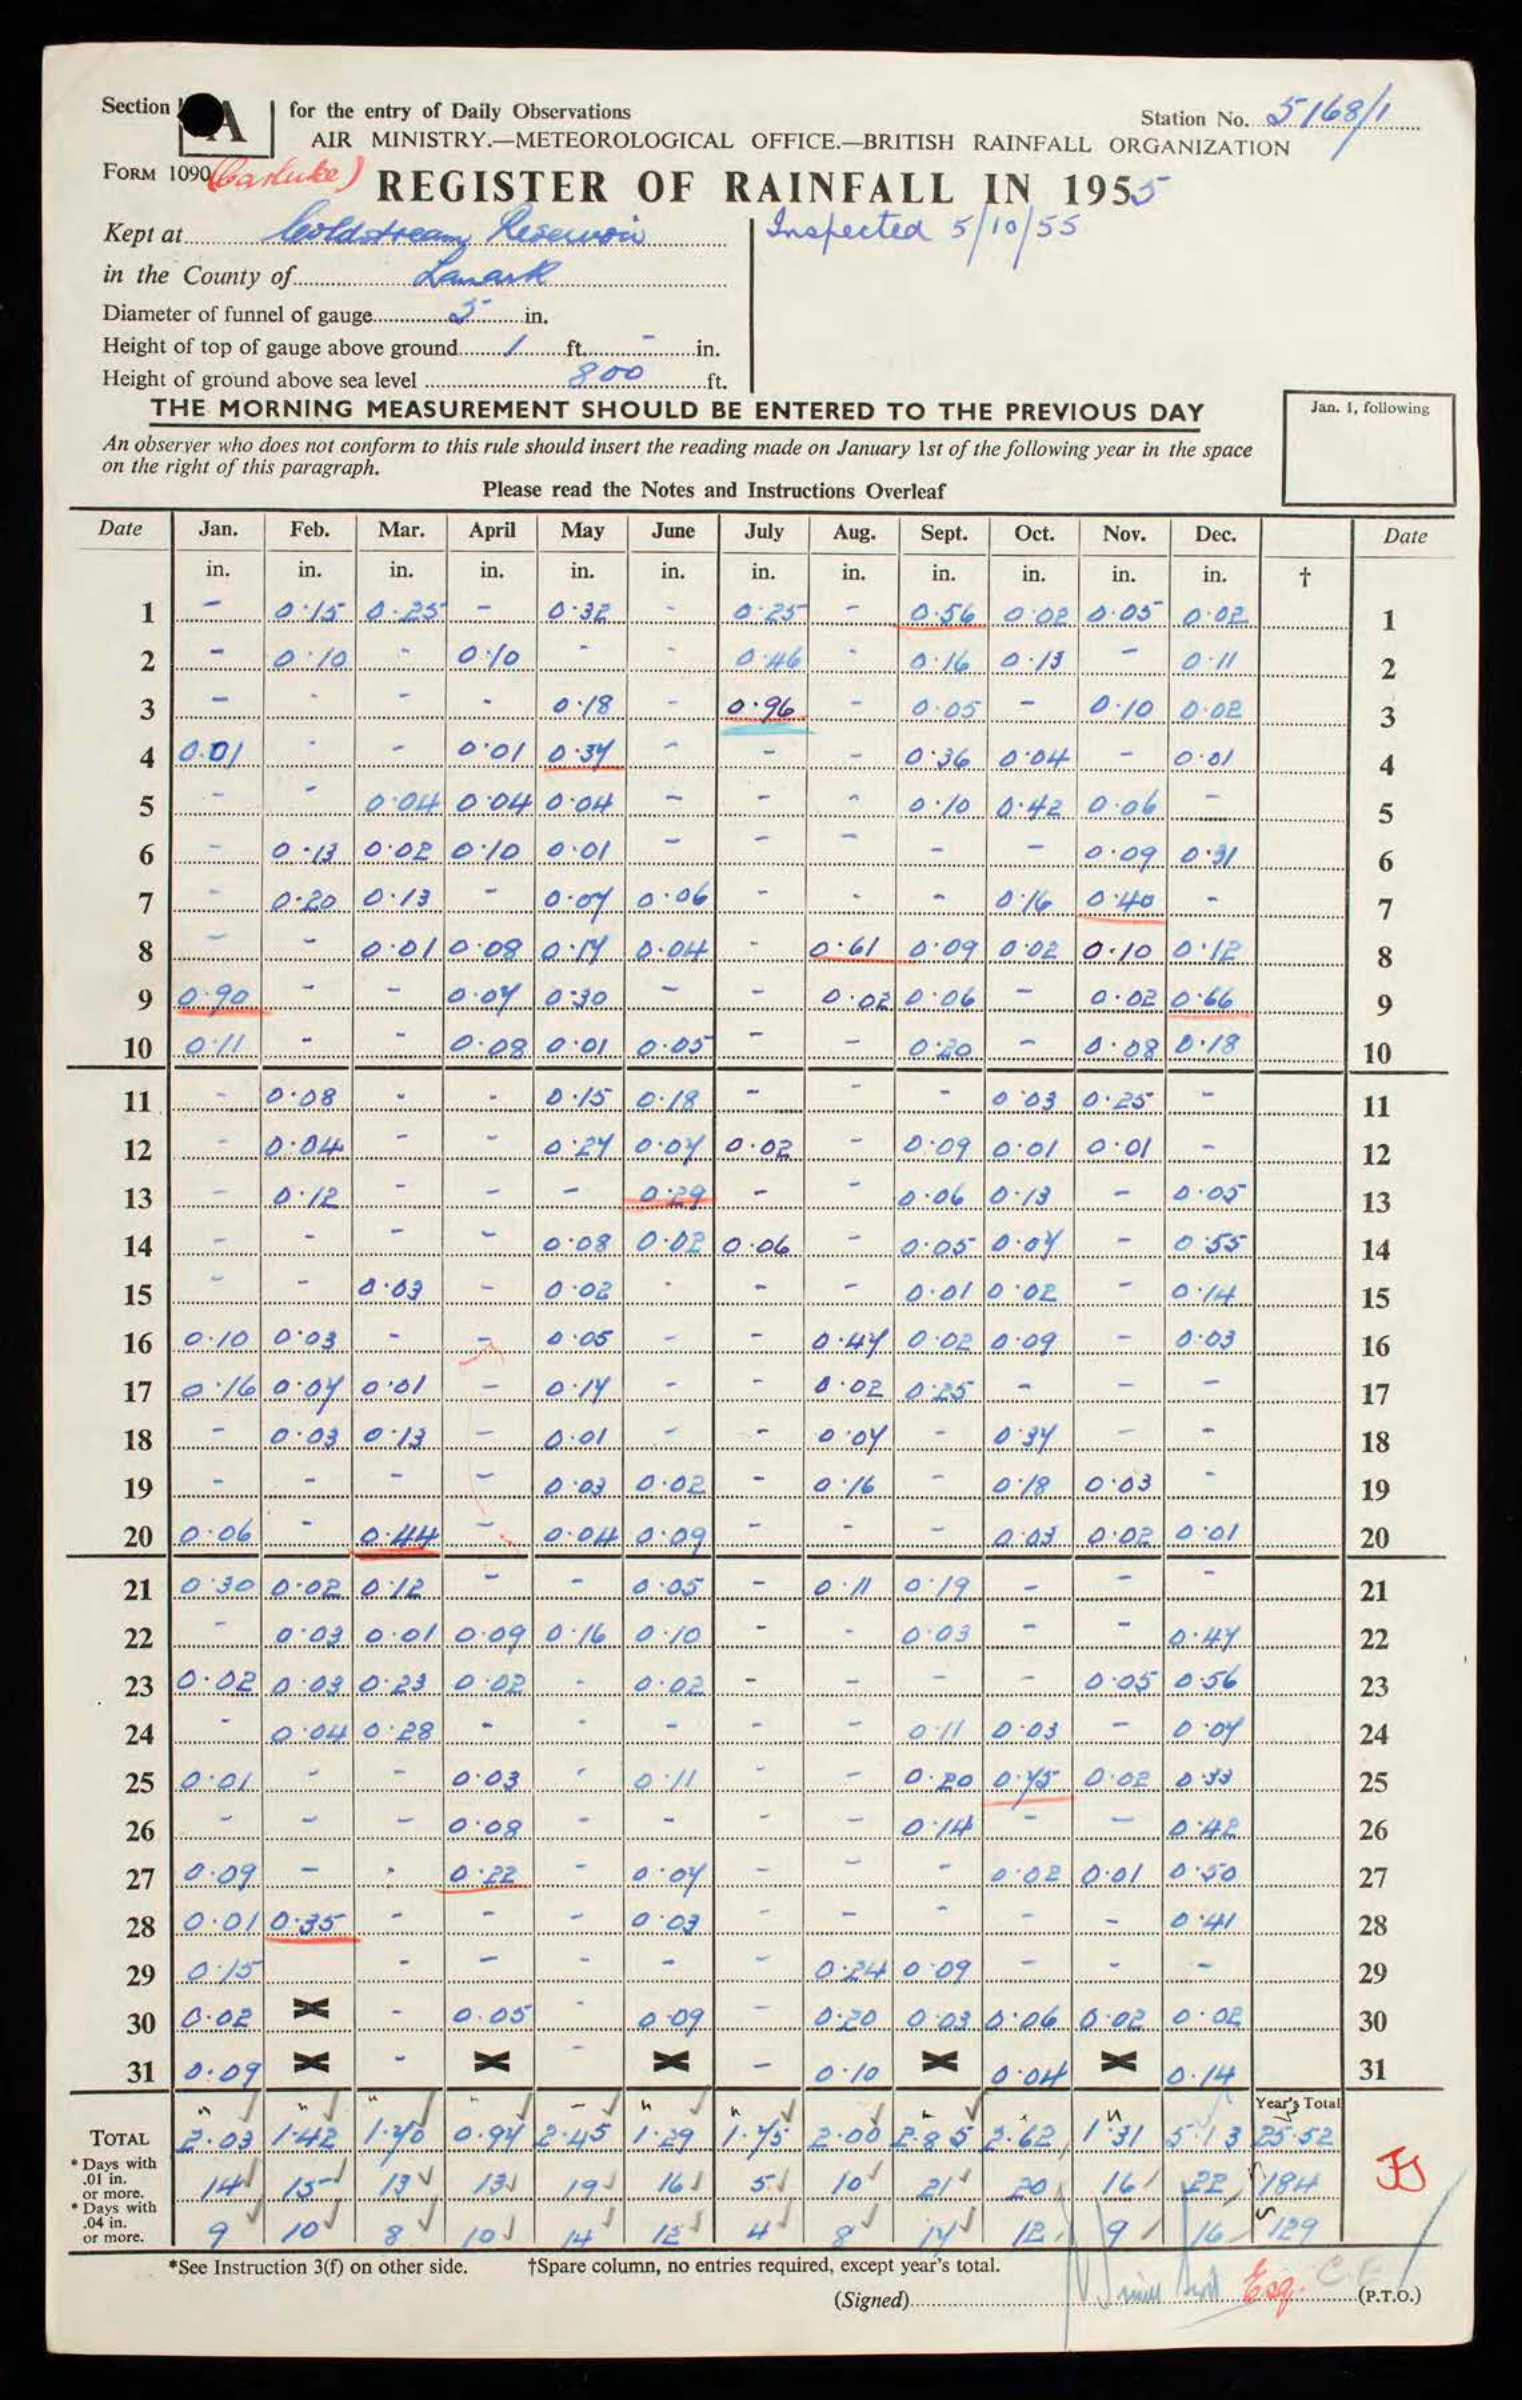 Section A for the entry of Daily Observations
Station No. 5168/1
AIR MINISTRY.—METEOROLOGICAL OFFICE.—BRITISH RAINFALL ORGANIZATION
FORM 1090 (Carluke) REGISTER OF RAINFALL IN 1955
Kept at Coldstream Reservoir
Inspected 5/10/55
in the County of Lanark
Diameter of funnel of gauge 5 in.
Height of top of gauge above ground 1 ft. - in.
Height of ground above sea level 800 ft.
THE MORNING MEASUREMENT SHOULD BE ENTERED TO THE PREVIOUS DAY
Jan. 1, following
An observer who does not conform to this rule should insert the reading made on January 1st of the following year in the space
on the right of this paragraph.
Please read the Notes and Instructions Overleaf
Date Jan. Feb. Mar. April May June July Aug. Sept. Oct. Nov. Dec. Date
in. in. in. in. in. in. in. in. in. in. in. in. †
1 - 0.15 0.25 - 0.32 - 0.25 - 0.56 0.02 0.05 0.02 1
2 - 0.10 - 0.10 - - 0.46 - 0.16 0.13 - 0.11 2
3 - - - - 0.18 - 0.96 - 0.05 - 0.10 0.02 3
4 0.01 - - 0.01 0.37 - - - 0.36 0.04 - 0.01 4
5 - - 0.04 0.04 0.04 - - - 0.10 0.42 0.06 - 5
6 - 0.13 0.02 0.10 0.01 - - - - - 0.09 0.31 6
7 - 0.20 0.13 - 0.07 0.06 - - - 0.16 0.40 - 7
8 - - 0.01 0.08 0.17 0.04 - 0.61 0.09 0.02 0.10 0.12 8
9 0.90 - - 0.07 0.30 - - 0.02 0.06 - 0.02 0.66 9
10 0.11 - - 0.08 0.01 0.05 - - 0.20 - 0.08 0.18 10
11 - 0.08 - - 0.15 0.18 - - - 0.03 0.25 - 11
12 - 0.04 - - 0.27 0.07 0.02 - 0.09 0.01 0.01 - 12
13 - 0.12 - - - 0.29 - - 0.06 0.13 - 0.05 13
14 - - - - 0.08 0.02 0.06 - 0.05 0.07 - 0.55 14
15 - - 0.03 - 0.02 - - - 0.01 0.02 - 0.14 15
16 0.10 0.03 - - 0.05 - - 0.47 0.02 0.09 - 0.03 16
17 0.16 0.07 0.01 - 0.17 - - 0.02 0.25 - - - 17
18 - 0.03 0.13 - 0.01 - - 0.07 - 0.37 - - 18
19 - - - - 0.03 0.02 - 0.16 - 0.18 0.03 - 19
20 0.06 - 0.44 - 0.04 0.09 - - - 0.03 0.02 0.01 20
21 0.30 0.02 0.12 - - 0.05 - 0.11 0.19 - - - 21
22 - 0.03 0.01 0.09 0.16 0.10 - - 0.03 - - 0.47 22
23 0.02 0.03 0.23 0.02 - 0.02 - - - - 0.05 0.56 23
24 - 0.04 0.28 - - - - - 0.11 0.03 - 0.07 24
25 0.01 - - 0.03 - 0.11 - - 0.20 0.75 0.02 0.33 25
26 - - - 0.08 - - - - 0.14 - - 0.42 26
27 0.09 - - 0.22 - 0.07 - - - 0.02 0.01 0.50 27
28 0.01 0.35 - - - 0.03 - - - - - 0.41 28
29 0.15 - - - - - 0.24 0.09 - - - 29
30 0.02 X - 0.05 - 0.09 - 0.20 0.03 0.06 0.02 0.02 30
31 0.09 X - X - X - 0.10 X 0.04 X 0.14 31
Year's Total
TOTAL 2.03 1.42 1.70 0.97 2.45 1.29 1.75 2.00 2.85 2.62 1.31 5.13 25.52
* Days with .01 in. or more. 14 15 13 13 19 16 5 10 21 20 16 22 184
* Days with .04 in. or more. 9 10 8 10 14 12 4 8 17 12 9 16 129
*See Instruction 3(f) on other side. †Spare column, no entries required, except year's total.
(Signed) Esq. (P.T.O.)